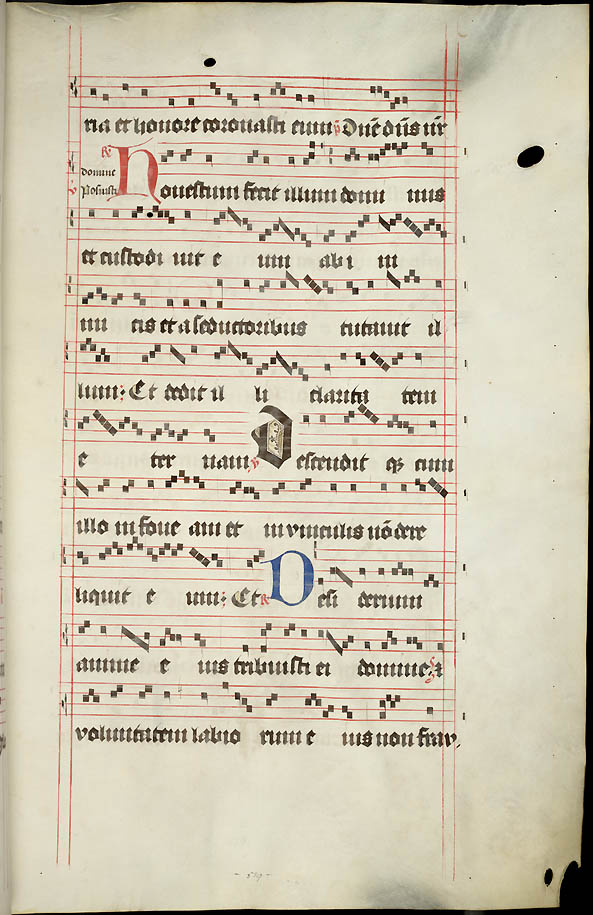 ria et honore coronasti eum ℣ Dn̄e dn̄s nr̄
℟ domine
℣ Posuisti
Honestum fecit illum domi nus
et custodi uit e um ab i ni
mi cis et a seductoribus tutauit il
lum: Et dedit il li clarita tem
e ter nam ℣ Descendit qȝ cum
illo in foue am et in vinculis nō dere
liquit e um: Et ℟ Desi derium
anime e ius tribuisti ei domine: ⁊
voluntatem labio rum e ius non frau
- 519 -